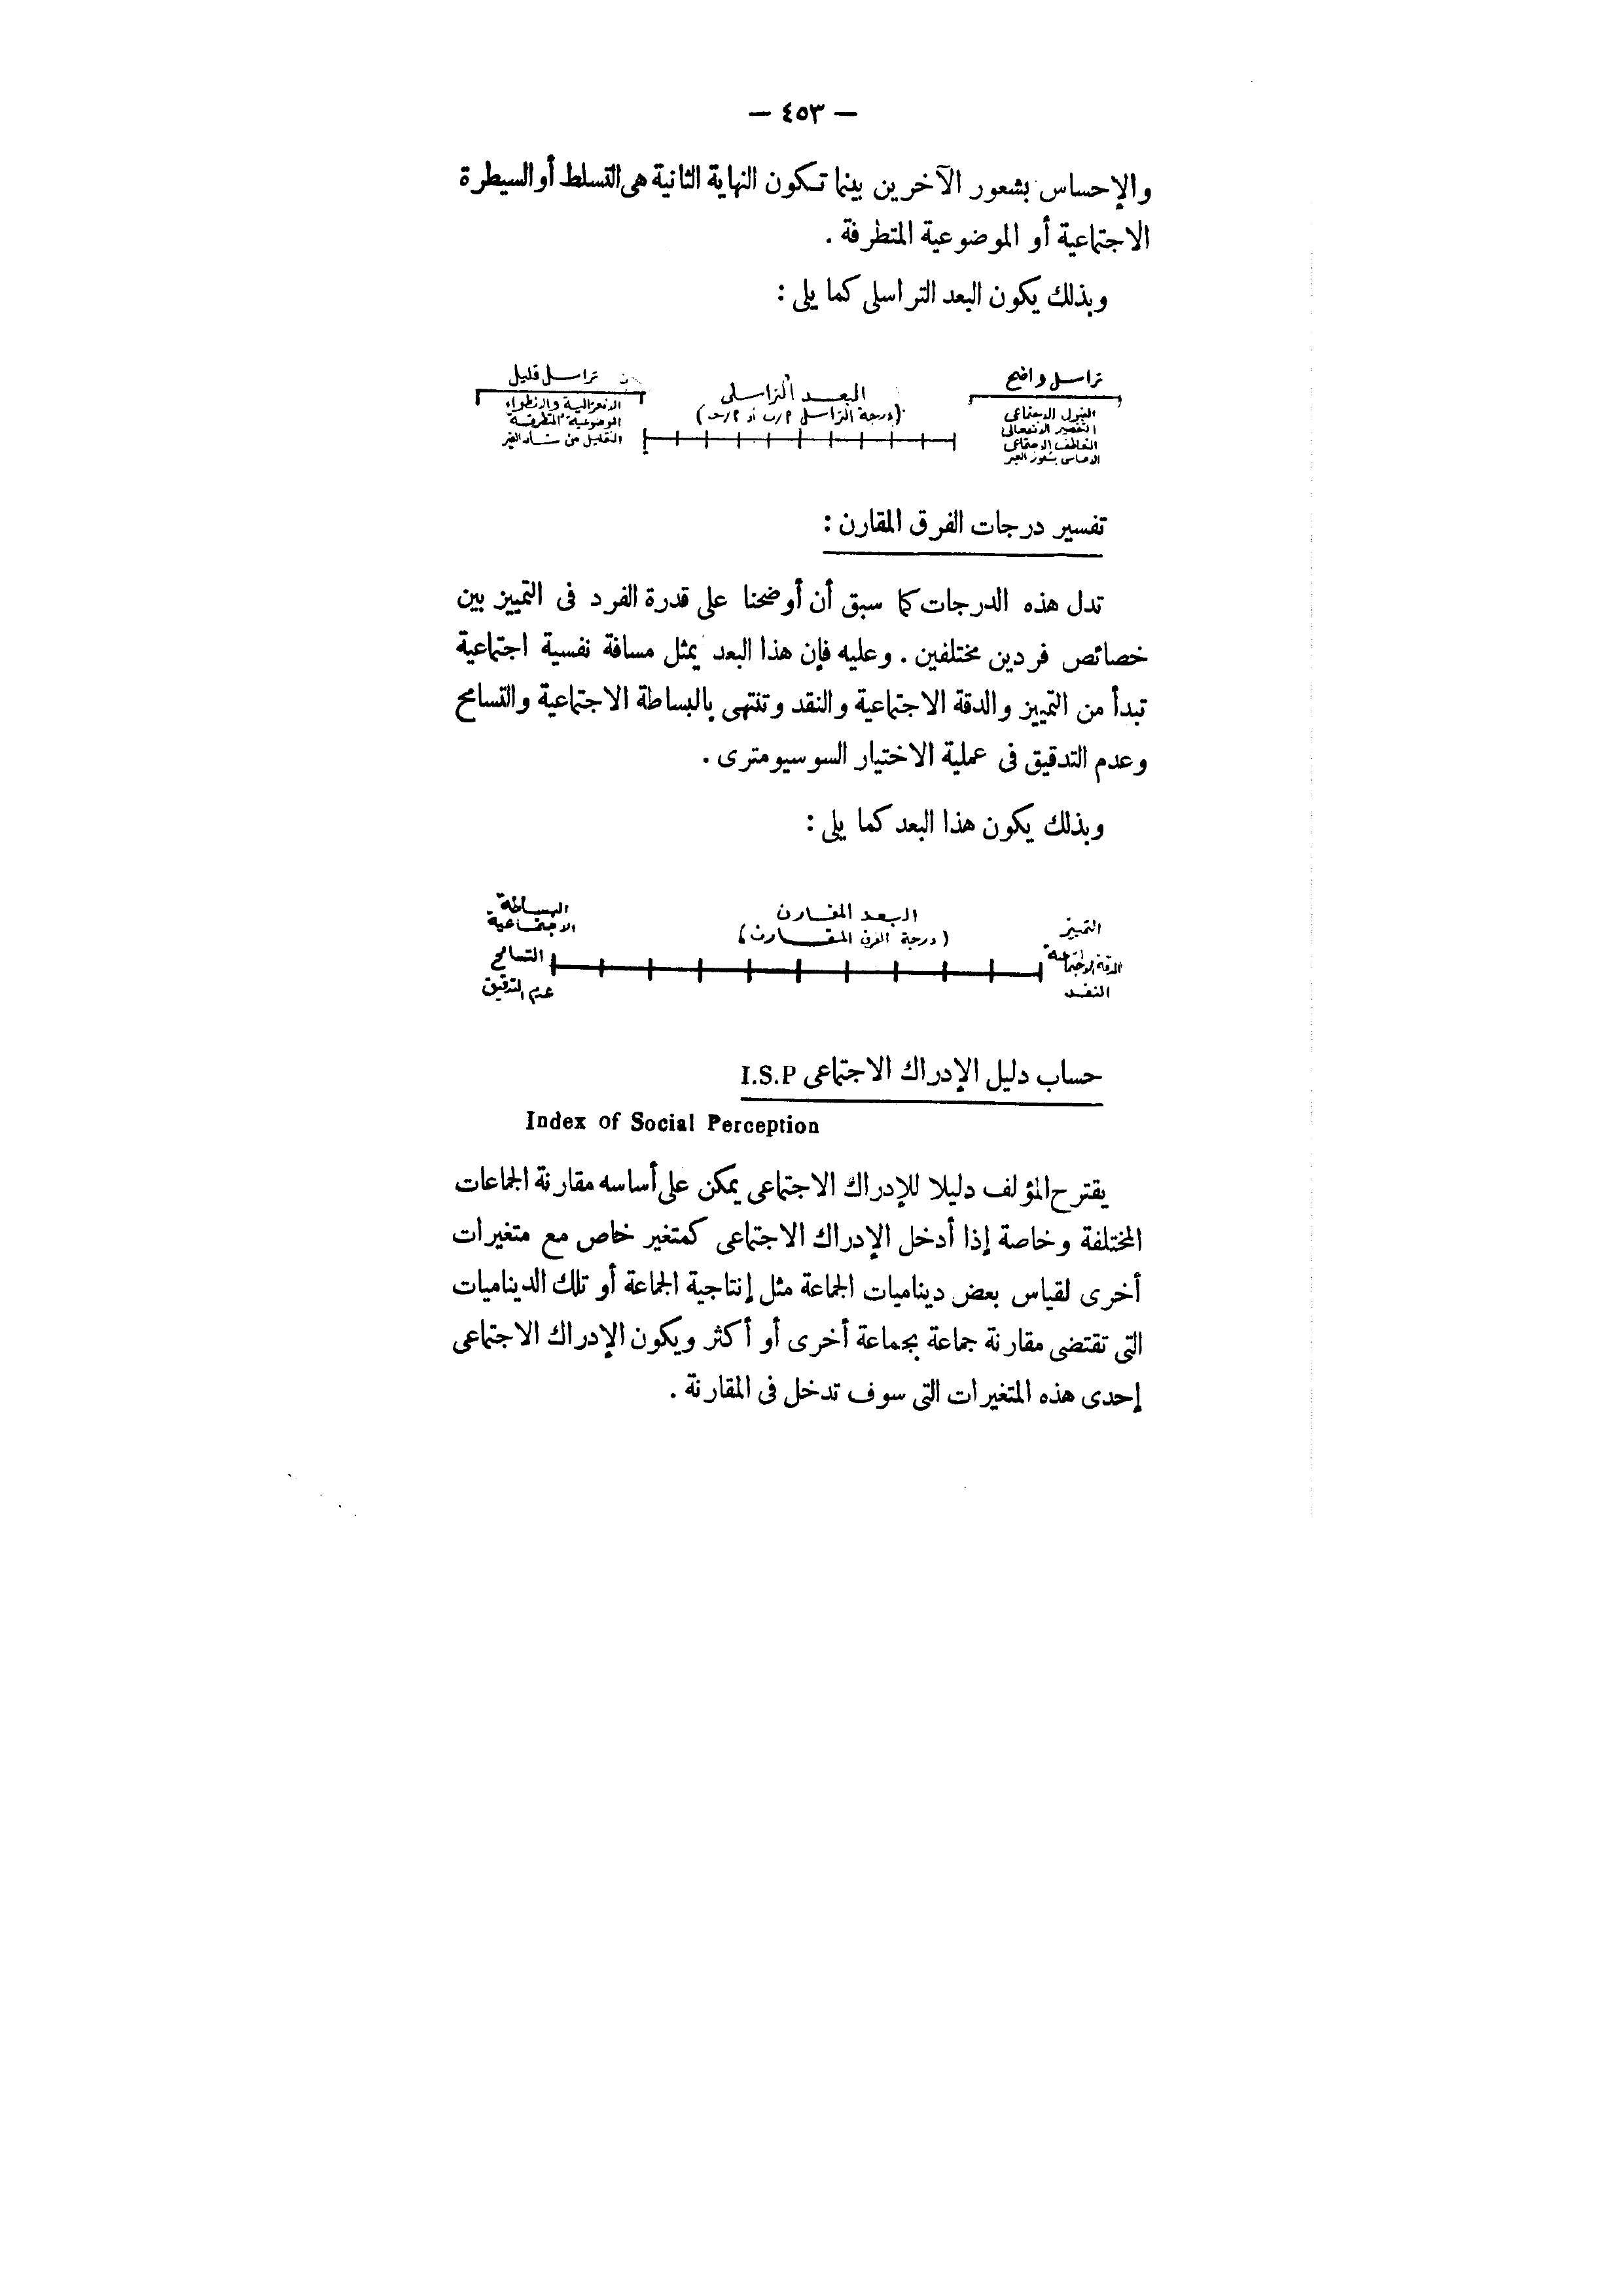 — ٤٥٣ —
والإحساس بشعور الآخرين بينما تكون النهاية الثانية هى التسلط أو السيطرة
الاجتماعية أو الموضوعية المتطرفة .
وبذلك يكون البعد التراسلى كما يلى :
تراسل واضح
القبول الاجتماعى
التفسير الانفعالى
التعاطف الاجتماعى
الاحساس بشعور الغير
البعد التراسلى
(درجة التراسل
تراسل قليل
الانعزالية والانطواء
الموضوعية المتطرفة
التقليل من شأن الغير
تفسير درجات الفرق المقارن :
تدل هذه الدرجات كما سبق أن أوضحنا على قدرة الفرد فى التمييز بين
خصائص فردين مختلفين . وعليه فإن هذا البعد يمثل مسافة نفسية اجتماعية
تبدأ من التمييز والدقة الاجتماعية والنقد وتنتهى بالبساطة الاجتماعية والتسامح
وعدم التدقيق فى عملية الاختيار السوسيومترى .
وبذلك يكون هذا البعد كما يلى :
التمييز
الدقة الاجتماعية
النقد
البعد المقارن
(درجة الفرق المقارن)
البساطة
الاجتماعية
التسامح
عدم التدقيق
حساب دليل الإدراك الاجتماعى I.S.P
Index of Social Perception
يقترح المؤلف دليلا للإدراك الاجتماعى يمكن على أساسه مقارنة الجماعات
المختلفة وخاصة إذا أدخل الإدراك الاجتماعى كمتغير خاص مع متغيرات
أخرى لقياس بعض ديناميات الجماعة مثل إنتاجية الجماعة أو تلك الديناميات
التى تقتضى مقارنة جماعة بجماعة أخرى أو أكثر ويكون الإدراك الاجتماعى
إحدى هذه المتغيرات التى سوف تدخل فى المقارنة .